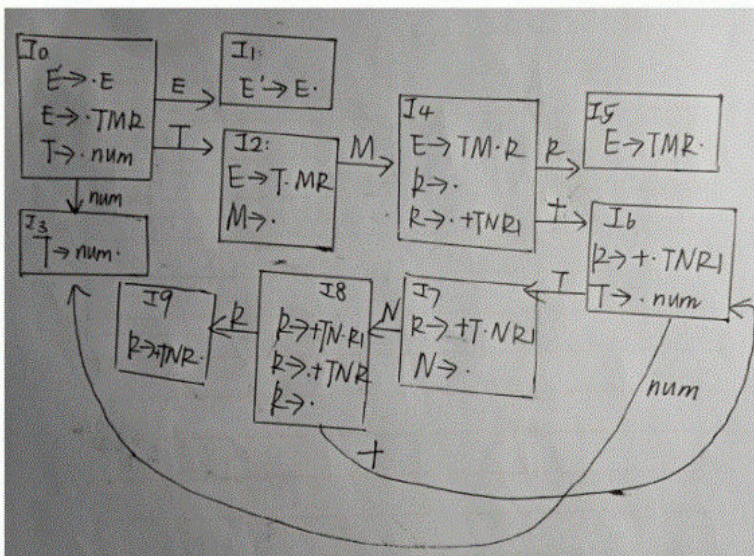 I0
E'→·E
E→·TMR
T→·num
E
T
num
I1:
E'→E·
I2:
E→T·MR
M→·
M
I3
T→num·
I4
E→TM·R
R→·
R→·+TNR1
R
+
I5
E→TMR·
I6
R→+·TNR1
T→·num
T
I7
R→+T·NR1
N→·
N
I8
R→+TN·R1
R→·+TNR
R→·
R
I9
R→+TNR·
num
+